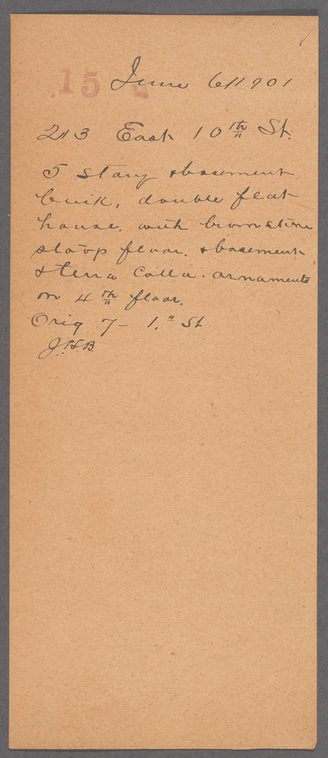 15
June 6/1901
213 East 10th St.
5 Story & basement
brick, double flat
house. with brown stone
stoop floor. & basement
& terra Cotta. ornaments
on 4th floor.
Orig 7 - 1." St
J.H.B.